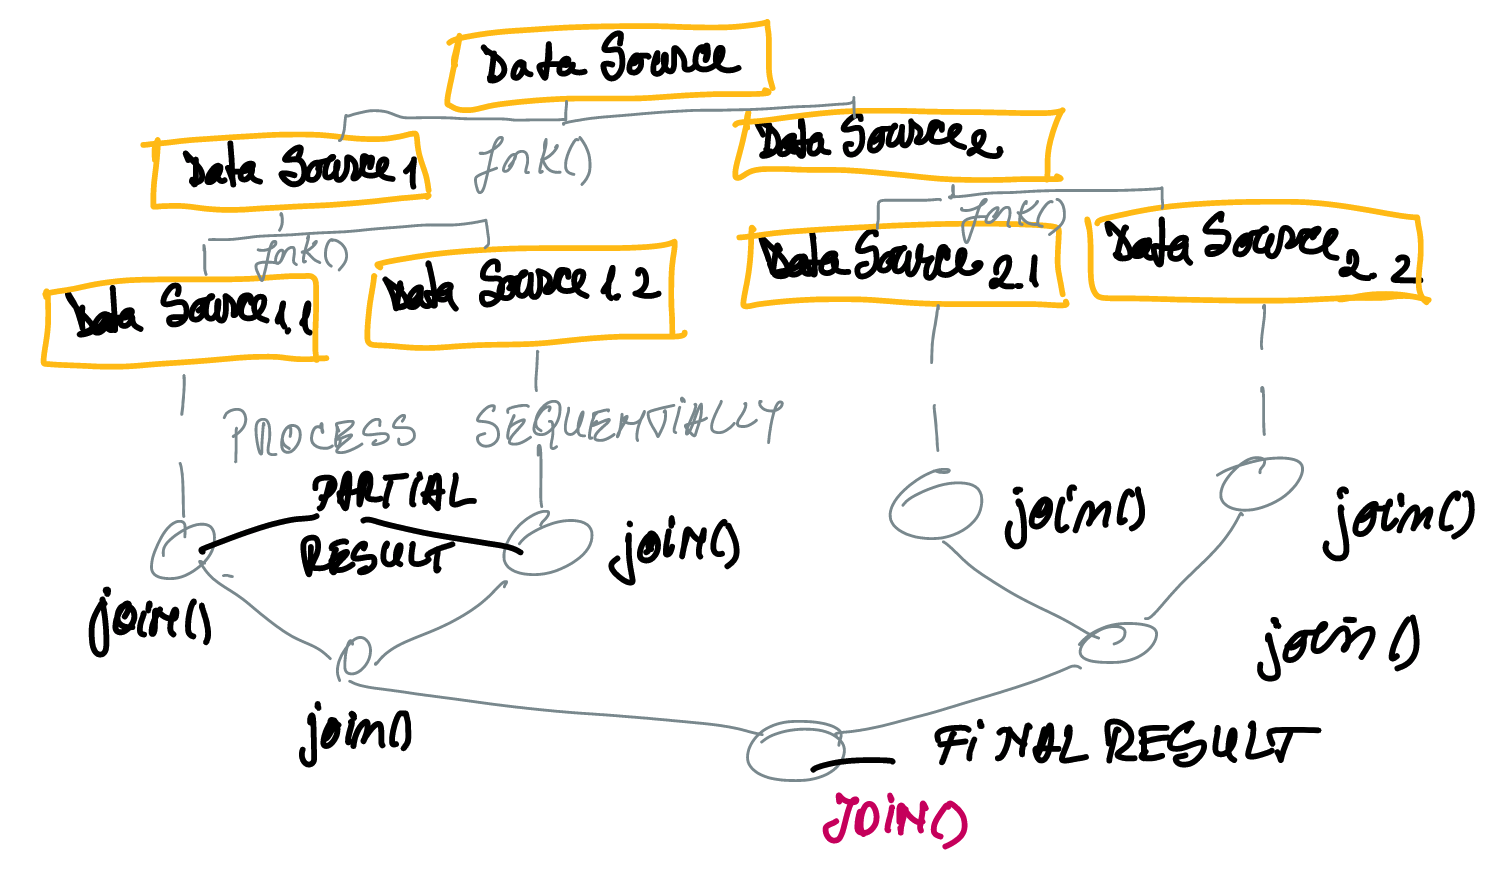 Data Source
Data Source 1
fork()
Data Source 2
fork()
fork()
Data Source 1.1
Data Source 1.2
Data Source 2.1
Data Source 2.2
PROCESS SEQUENTIALLY
PARTIAL
RESULT
join()
join()
join()
join()
join()
join()
FINAL RESULT
JOIN()